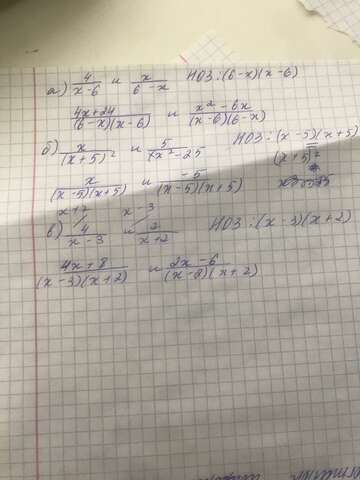 а) 4/(x-6) и x/(6-x) НОЗ: (6-x)(x-6)
(4x+24)/((6-x)(x-6)) и (x²-6x)/((x-6)(6-x))
б) x/(x+5)² и 5/(x²-25) НОЗ: (x-5)(x+5)
(x+5)²
x/((x-5)(x+5)) и -5/((x-5)(x+5))
x+2 x-3
в) 4/(x-3) и 2/(x+2) НОЗ: (x-3)(x+2)
(4x+8)/((x-3)(x+2)) и (2x-6)/((x-3)(x+2))